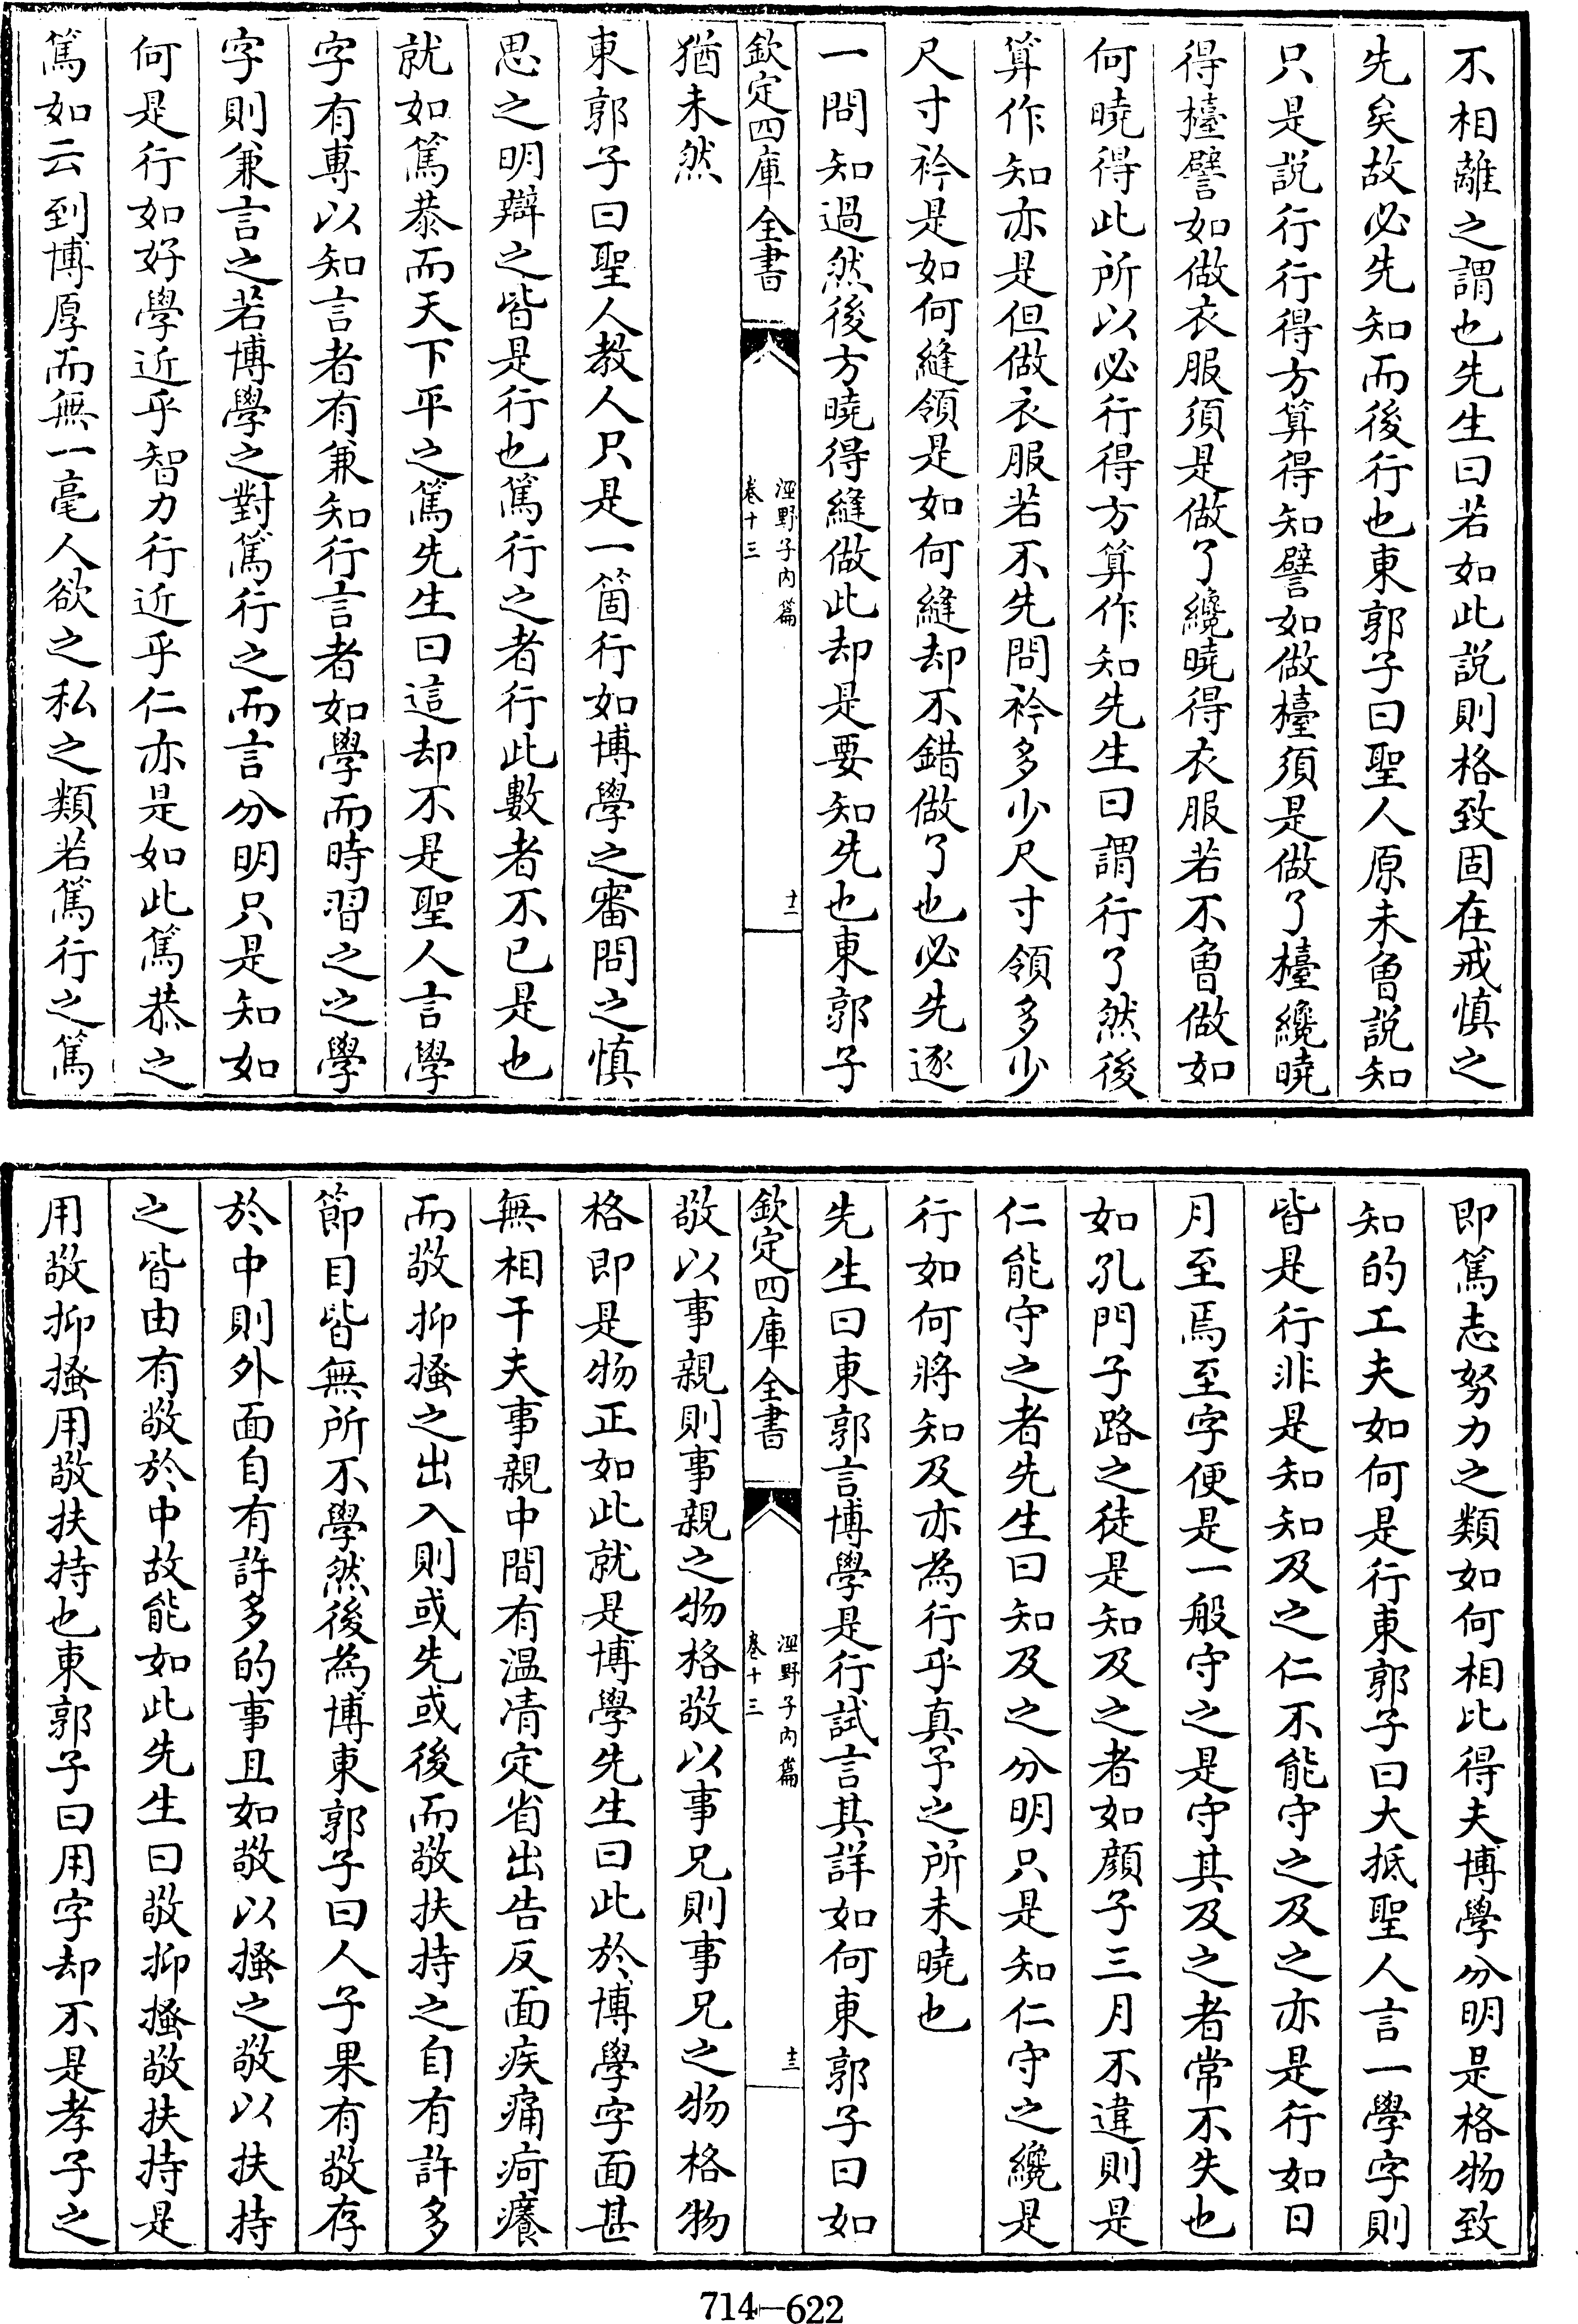 不相離之謂也先生曰若如此説則格致固在戒慎之
先矣故必先知而後行也東郭子曰聖人原未㑹説知
只是説行行得方算得知譬如做檯須是做了檯纔曉
得檯譬如做衣服須是做了纔曉得衣服若不㑹做如
何曉得此所以必行得方算作知先生曰謂行了然後
算作知亦是但做衣服若不先問衿多少尺寸領多少
尺寸衿是如何縫領是如何縫却不錯做了也必先逐
一問知過然後方曉得縫做此却是要知先也東郭子
欽定四庫全書
涇野子内篇
卷十三
十二
猶未然
東郭子曰聖人教人只是一箇行如博學之審問之慎
思之明辯之皆是行也篤行之者行此數者不已是也
就如篤恭而天下平之篤先生曰這却不是聖人言學
字有專以知言者有兼知行言者如學而時習之之學
字則兼言之若博學之對篤行之而言分明只是知如
何是行如好學近乎智力行近乎仁亦是如此篤恭之
篤如云到博厚而無一毫人欲之私之類若篤行之篤
即篤志努力之類如何相比得夫博學分明是格物致
知的工夫如何是行東郭子曰大抵聖人言一學字則
皆是行非是知知及之仁不能守之及之亦是行如日
月至焉至字便是一般守之是守其及之者常不失也
如孔門子路之徒是知及之者如顔子三月不違則是
仁能守之者先生曰知及之分明只是知仁守之纔是
行如何將知及亦為行乎真予之所未曉也
先生曰東郭言博學是行試言其詳如何東郭子曰如
欽定四庫全書
涇野子内篇
卷十三
十三
敬以事親則事親之物格敬以事兄則事兄之物格物
格即是物正如此就是博學先生曰此於博學字面甚
無相干夫事親中間有温凊定省出告反面疾痛疴癢
而敬抑搔之出入則或先或後而敬扶持之自有許多
節目皆無所不學然後為博東郭子曰人子果有敬存
於中則外面自有許多的事且如敬以搔之敬以扶持
之皆由有敬於中故能如此先生曰敬抑搔敬扶持是
用敬抑搔用敬扶持也東郭子曰用字却不是孝子之
714—622